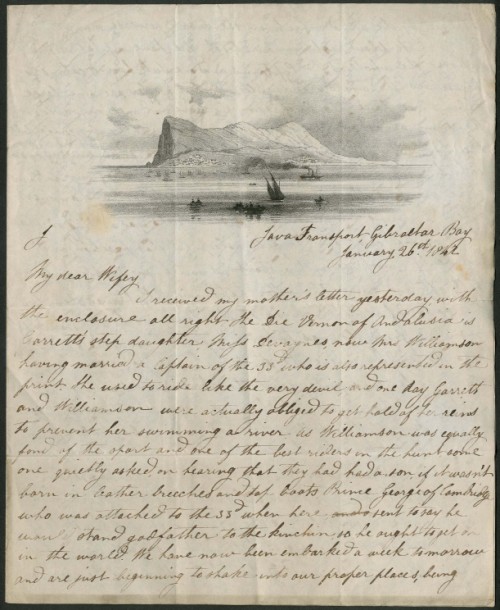 J,
Java Transport Gibraltar Bay
January 26th 1842
My dear Wifey
I received my mother's letter yesterday with
the enclosure all right The Die Vernon of Andalusia is
Garrett's step daughter Miss now Mrs Williamson
having married a Captain of the 33d who is also represented in the
print She used to ride like the very devil and one day Garrett
and Williamson were actually obliged to get hold of her reins
to prevent her swimming a river as Williamson was equally
fond of the sport and one of the best riders in the hunt some
one quietly asked on hearing that they had had a son if it wasn't
born in leather breeches and top boots Prince George of Cambridge
who was attached to the 33d when here and sent to say he
would stand godfather to the kinchin so he ought to get on
in the world. We have now been embarked a week tomorrow
and are just beginning to shake into our proper places, being